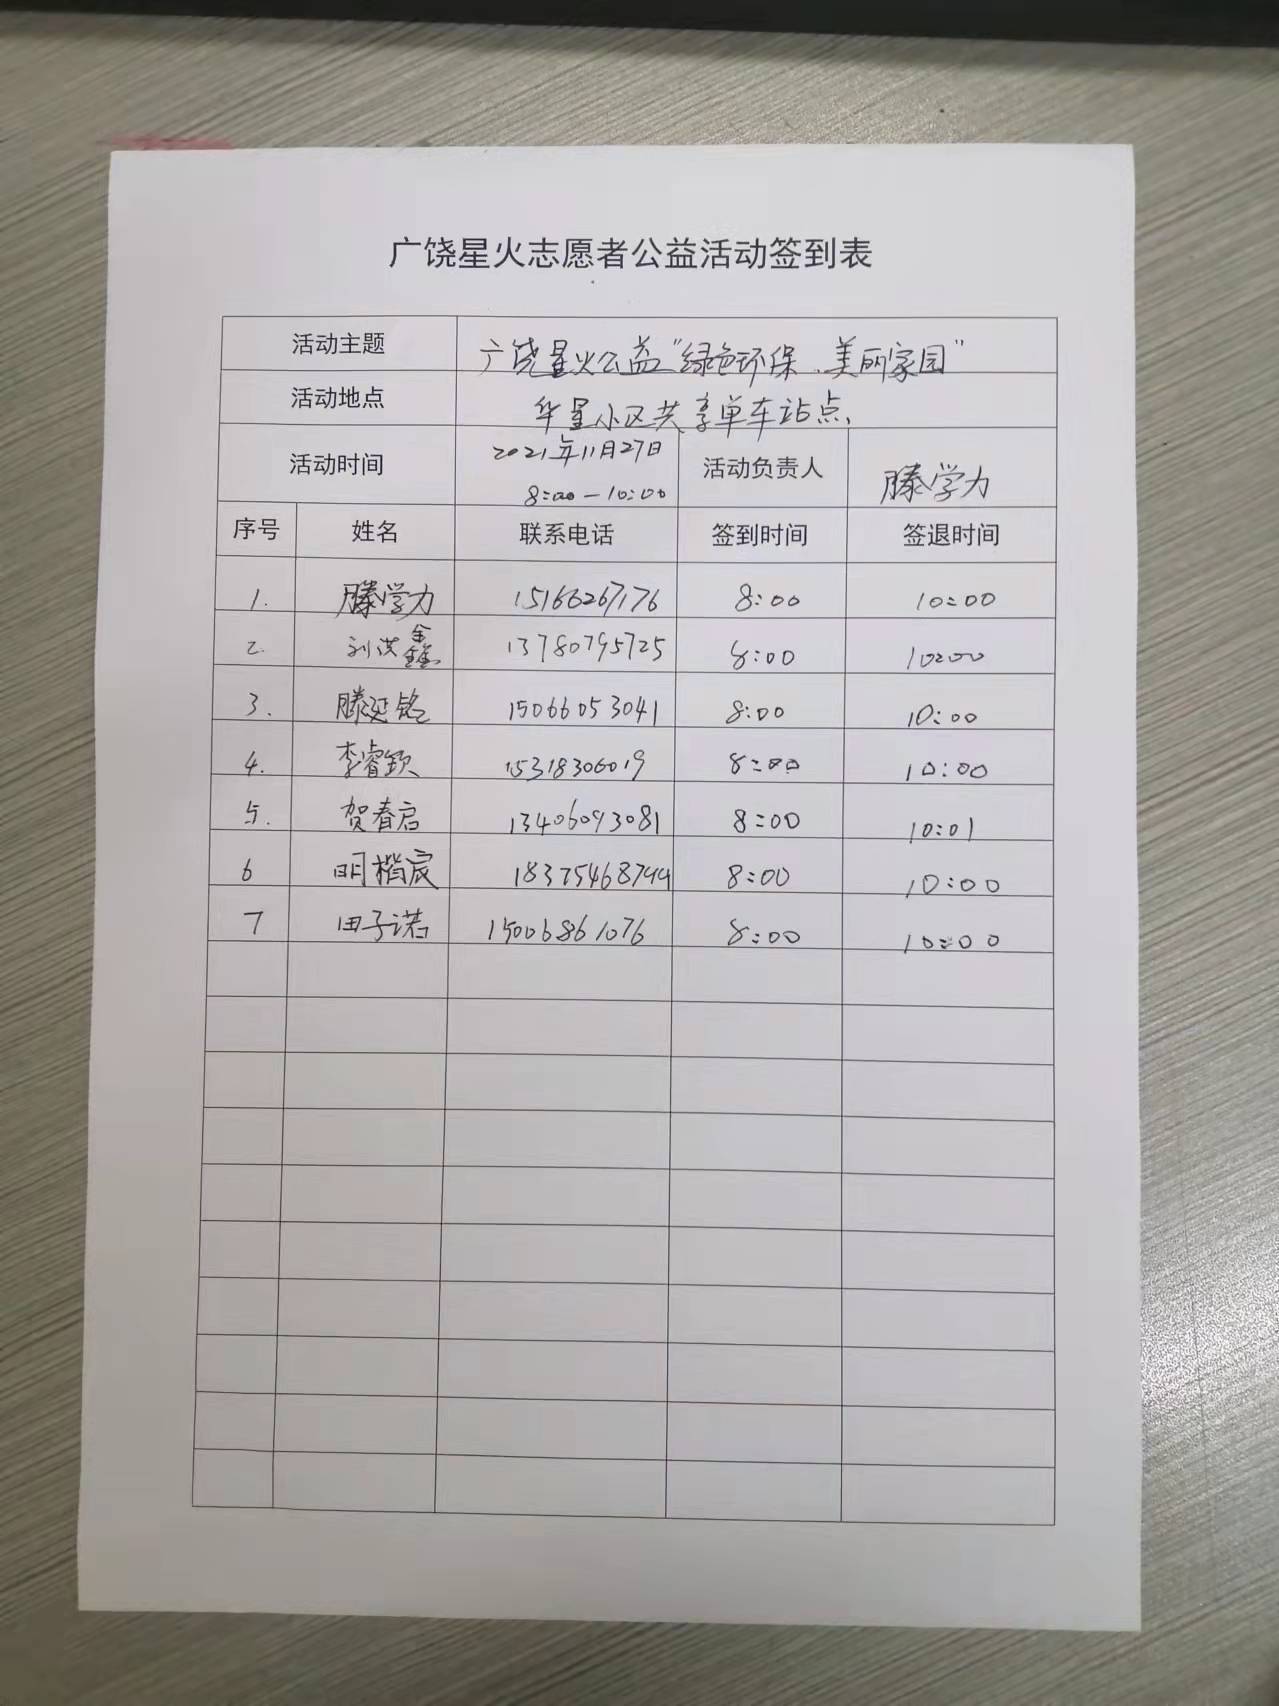 广饶星火志愿者公益活动签到表
活动主题 广饶星火公益"绿色环保、美丽家园"
活动地点 华星小区共享单车站点、
活动时间 2021年11月27日 8:00-10:00 活动负责人 滕学力
序号 姓名 联系电话 签到时间 签退时间
1. 滕学力 15166267176 8:00 10:00
2. 刘洪鑫 13780795725 8:00 10:00
3. 滕延铭 15066053041 8:00 10:00
4. 李睿钦 15318306019 8:00 10:00
5. 贺春启 13406093081 8:00 10:01
6 明楷宸 18375468744 8:00 10:00
7 田子诺 15006861076 8:00 10:00